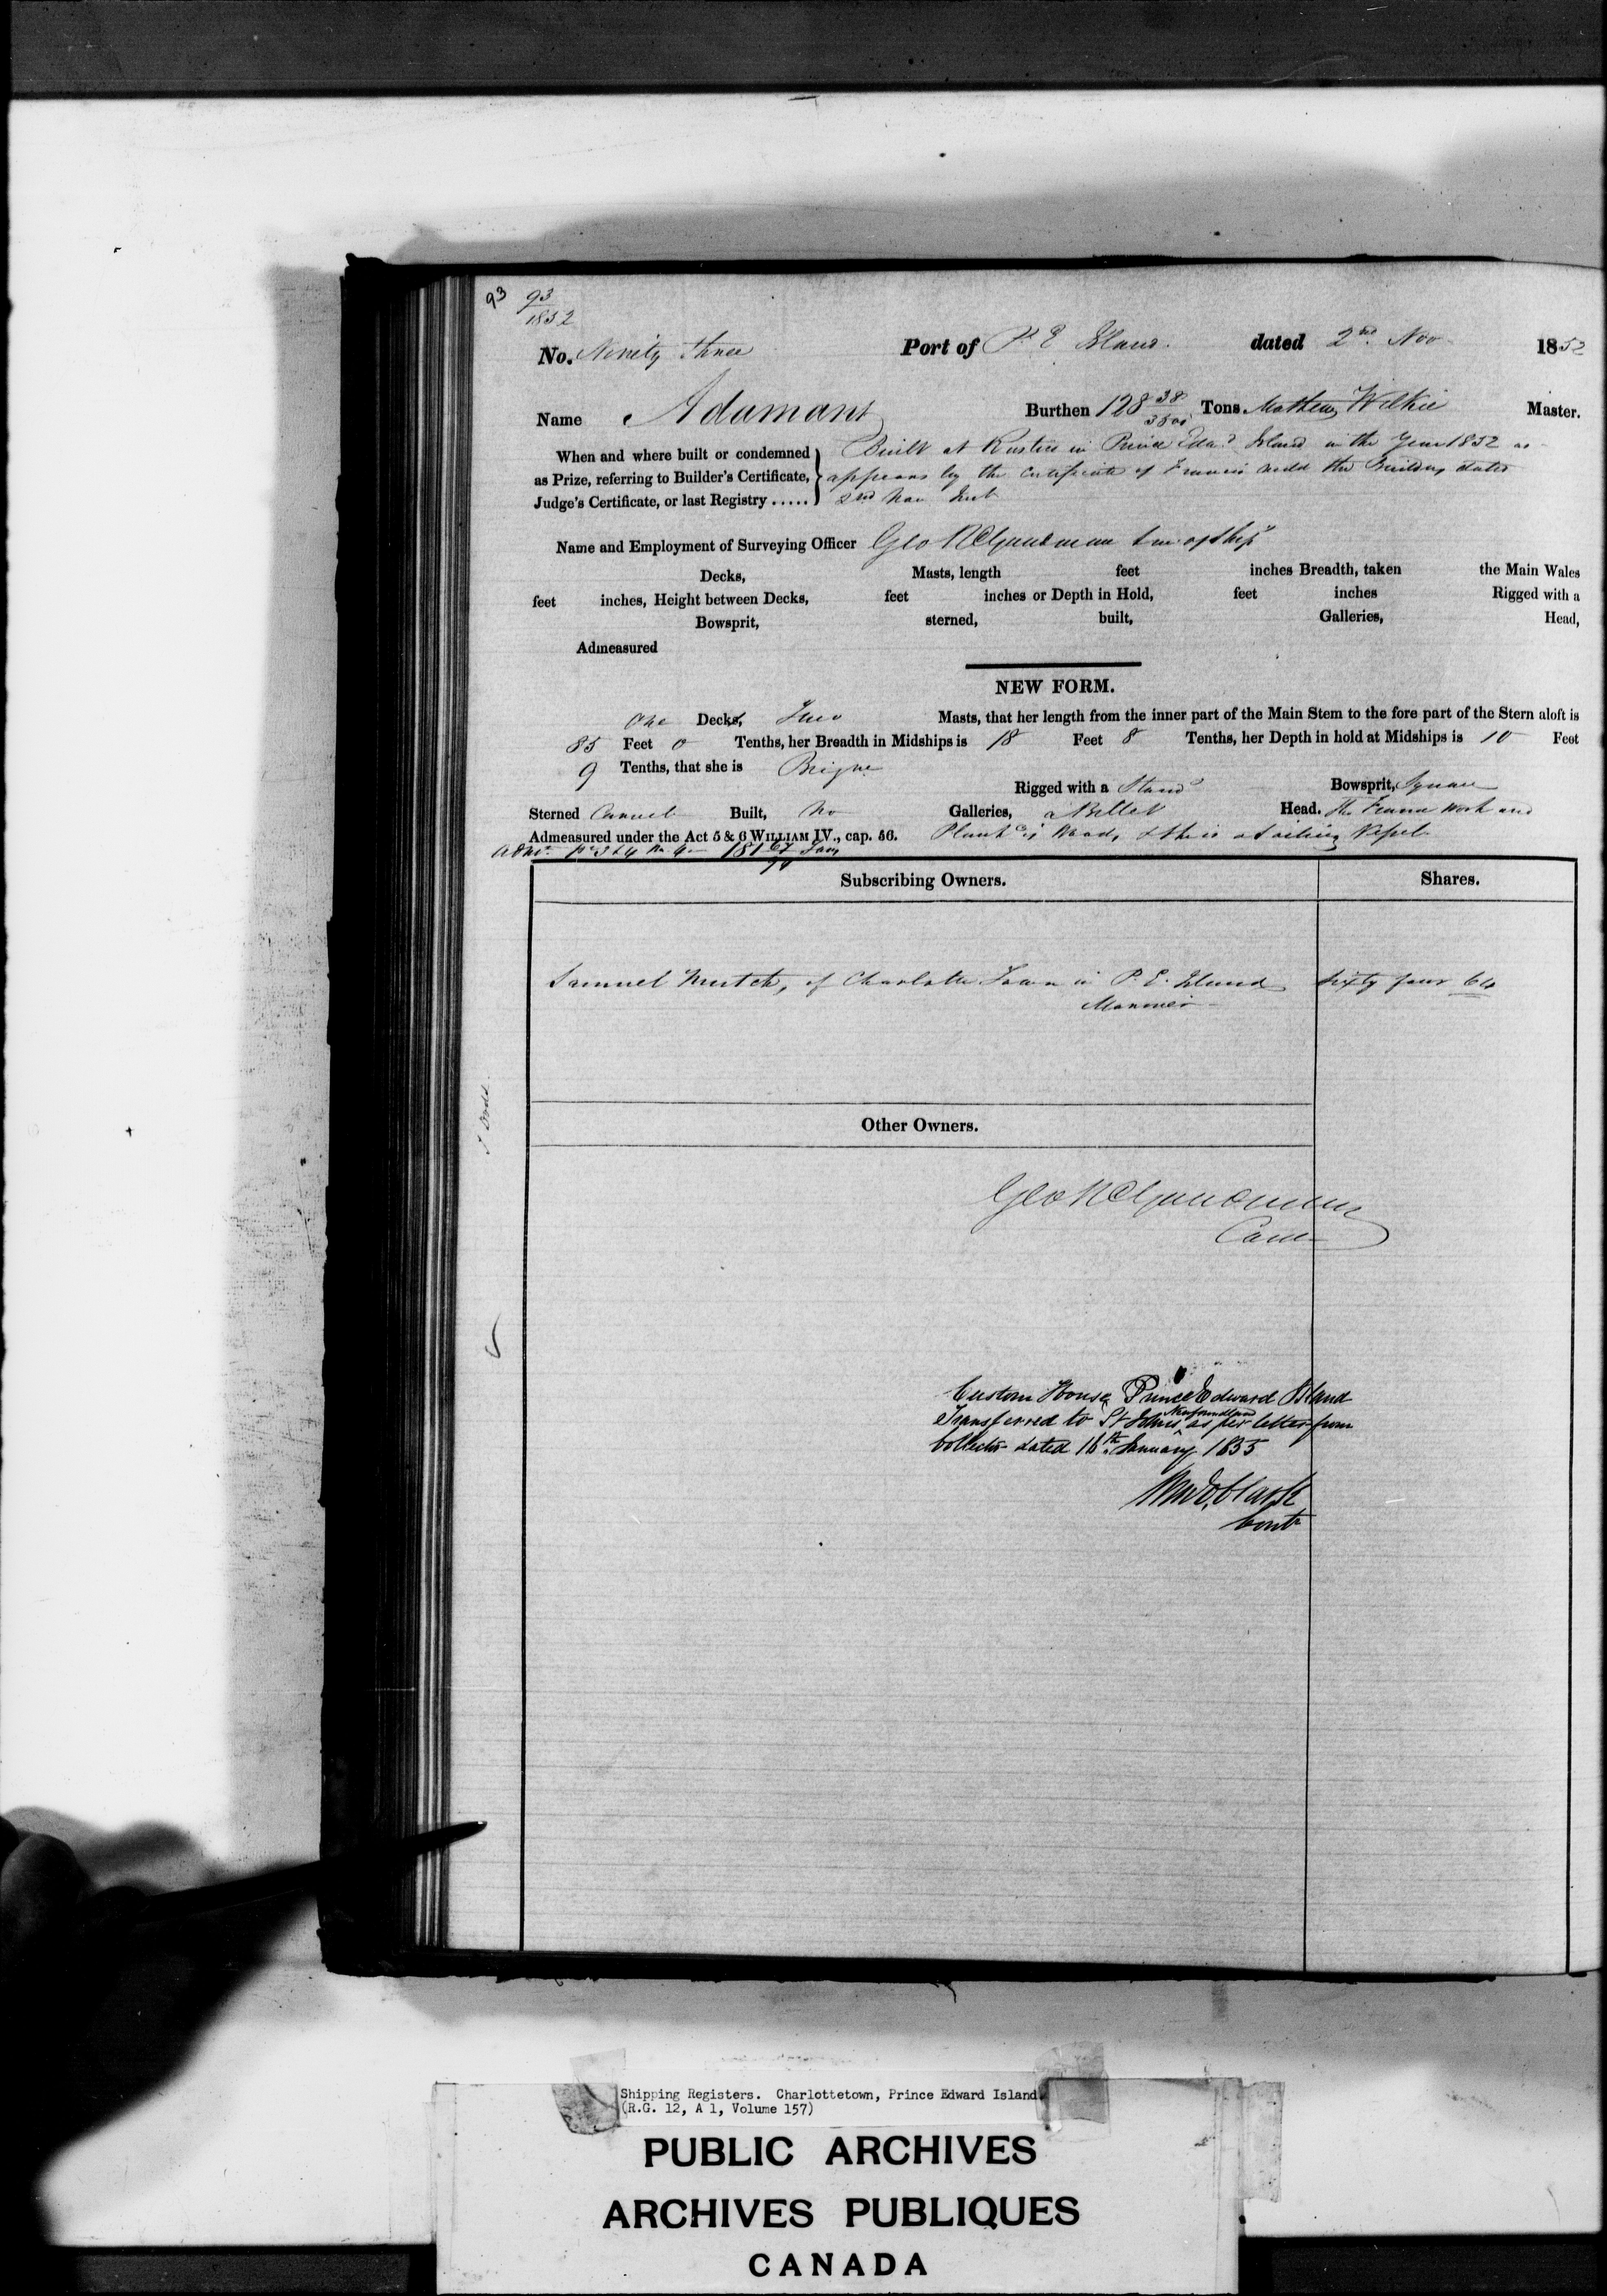 93 93
1852
No. Ninety three Port of P. E. Island. dated 2nd Nov 1852
Name Adamant Burthen 128 38/3500 Tons Mathew Wilkie Master.
When and where built or condemned Built at Rustico in Prince Edwd Island in the Year 1852 as
as Prize, referring to Builder's Certificate, appears by the Certificate of Francis the Builder, dated
Judge's Certificate, or last Registry ..... 2nd Nov Inst
Name and Employment of Surveying Officer Geo R Goodman
Decks, Masts, length feet inches Breadth, taken the Main Wales
feet inches, Height between Decks, feet inches or Depth in Hold, feet inches Rigged with a
Bowsprit, sterned, built, Galleries, Head,
Admeasured
NEW FORM.
One Decks, Two Masts, that her length from the inner part of the Main Stem to the fore part of the Stern aloft is
85 Feet 0 Tenths, her Breadth in Midships is 18 Feet 8 Tenths, her Depth in hold at Midships is 10 Feet
9 Tenths, that she is Brigne Rigged with a Standg Bowsprit, Square
Sterned Carvel Built, No Galleries, a Billet Head. the Frame Work and
Admeasured under the Act 5 & 6 WILLIAM IV., cap. 56. Plankg is Wood, & she is a Sailing Vessel
181 Tons
Subscribing Owners. Shares.
Samuel Mutch, of Charlotte Town in P. E. Island Sixty four 64
Mariner
Other Owners.
Geo R Goodman
Custom House Prince Edward Island
Transferred to St Johns Newfoundland as per letter from
Collector dated 16th January 1855
Cont
Shipping Registers. Charlottetown, Prince Edward Island
(R.G. 12, A 1, Volume 157)
PUBLIC ARCHIVES
ARCHIVES PUBLIQUES
CANADA